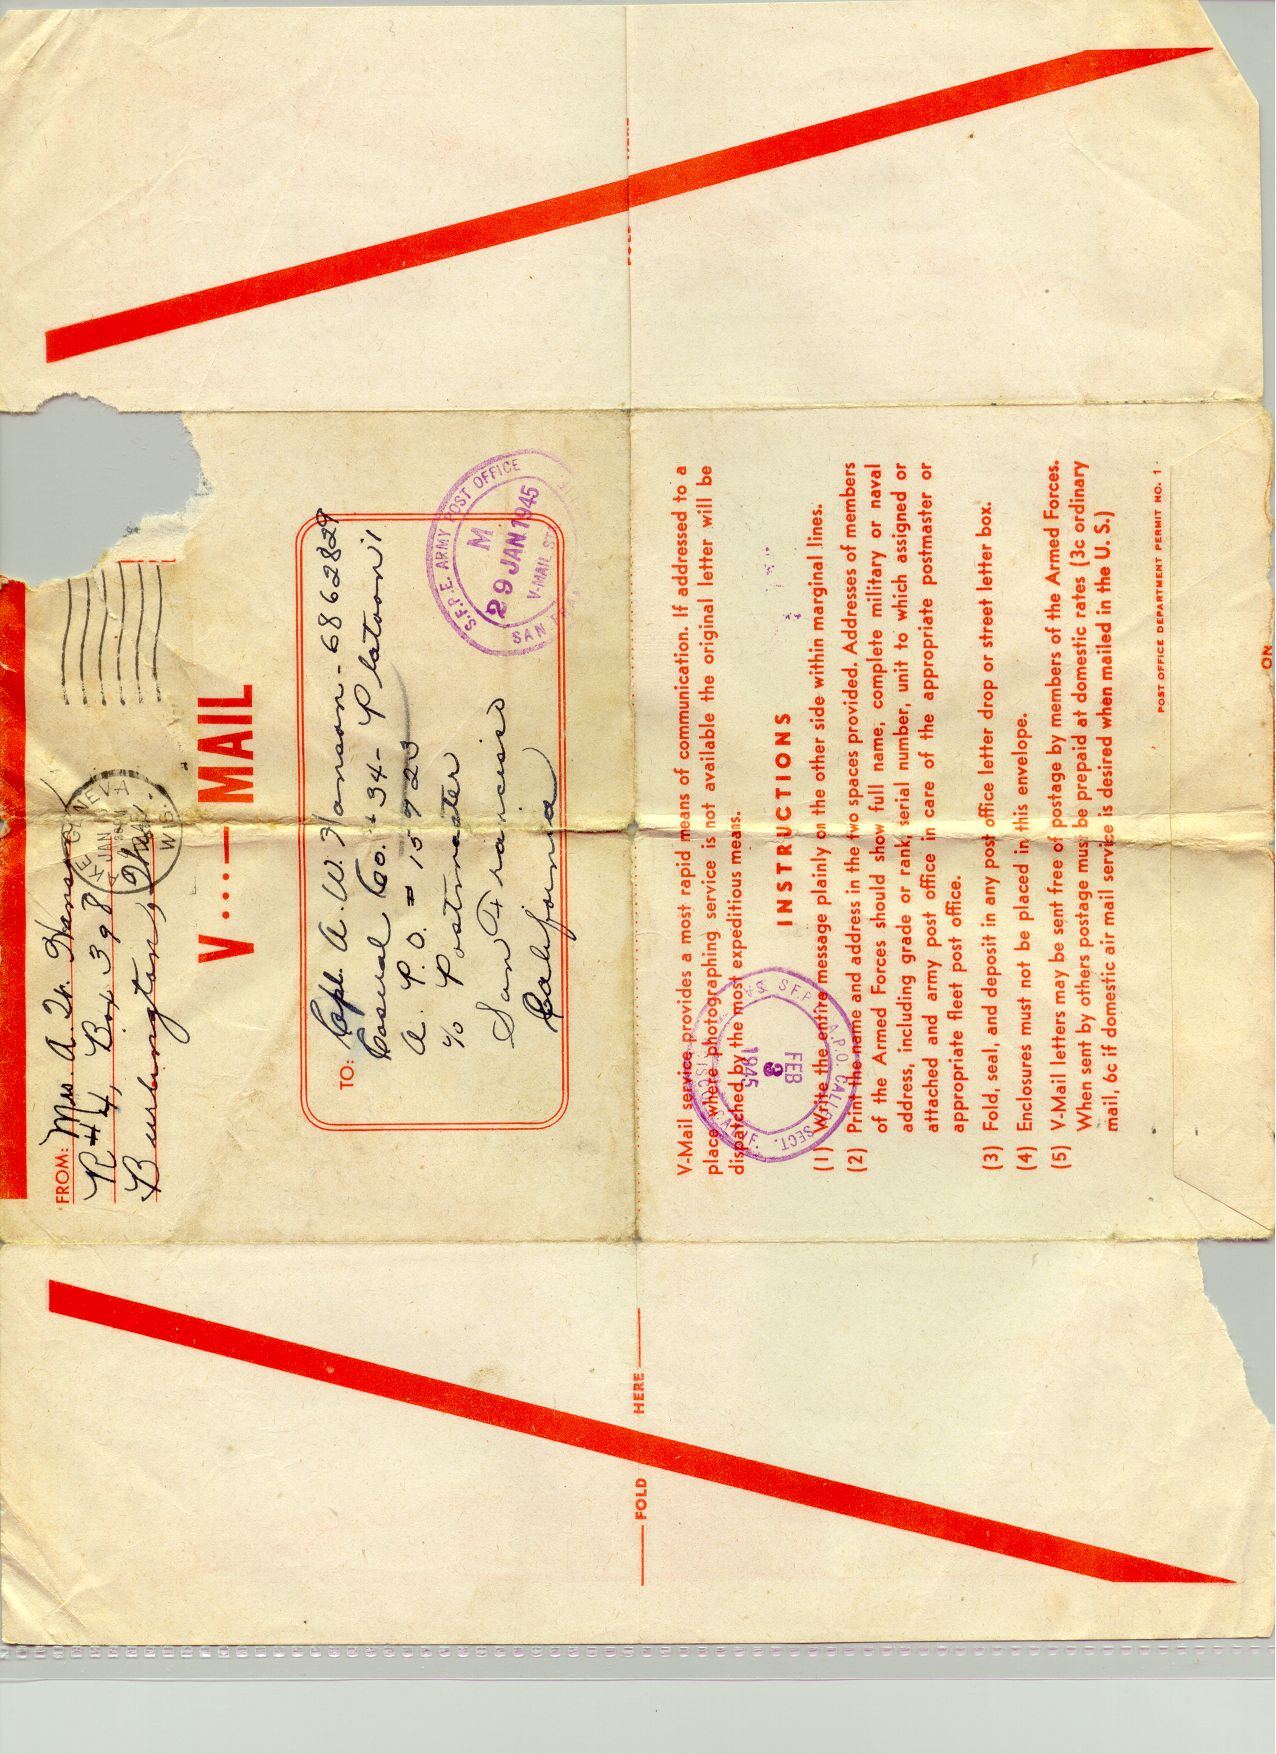 FROM: Mrs. A. W. Hanson
R#4, Box 398
Burlington, Wis.
KE GENEVA
JAN
WIS.
V...—MAIL
TO: Cpl. A. W. Hanson - 6862829
Casual Co. # 34 - Platoon 1
A. P. O. = 15923
% Postmaster
San Francisco
California
S.F.P.E. ARMY POST OFFICE
M
29 JAN 1945
V-MAIL ST
SAN
FOLD HERE
V-Mail service provides a most rapid means of communication. If addressed to a
place where photographing service is not available the original letter will be
dispatched by the most expeditious means.
INSTRUCTIONS
(1) Write the entire message plainly on the other side within marginal lines.
(2) Print the name and address in the two spaces provided. Addresses of members
of the Armed Forces should show full name, complete military or naval
address, including grade or rank, serial number, unit to which assigned or
attached and army post office in care of the appropriate postmaster or
appropriate fleet post office.
(3) Fold, seal, and deposit in any post office letter drop or street letter box.
(4) Enclosures must not be placed in this envelope.
(5) V-Mail letters may be sent free of postage by members of the Armed Forces.
When sent by others postage must be prepaid at domestic rates (3c ordinary
mail, 6c if domestic air mail service is desired when mailed in the U. S.)
FEB
3
1945
POST OFFICE DEPARTMENT PERMIT NO. 1
ON